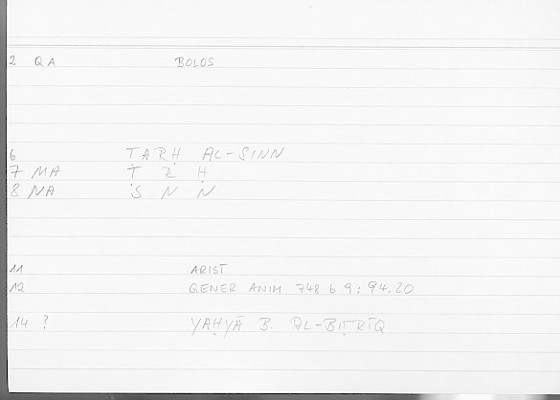 2 QA BOLOS
6 ṬARḤ AL-SINN
7 MA Ṭ Z Ḥ
8 NA S N N
11 ARIST
12 GENER ANIM 748 b 9: 94.20
14 ? YAḤYĀ B. AL-BIṬRĪQ